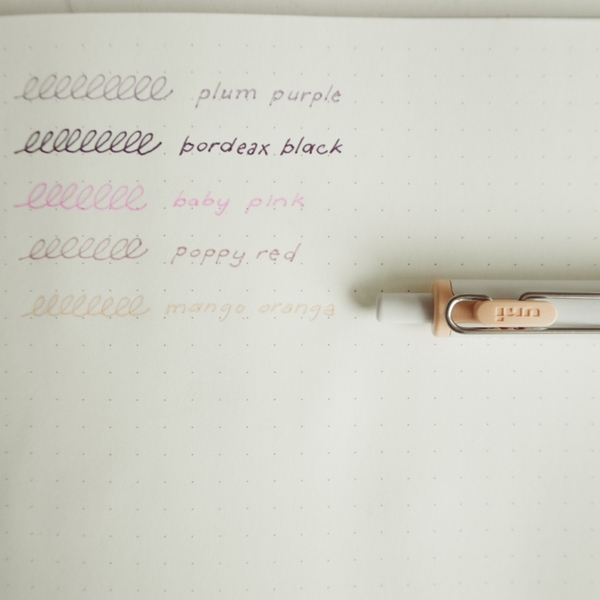 plum purple
bordeax black
baby pink
poppy red
mango orange
uni